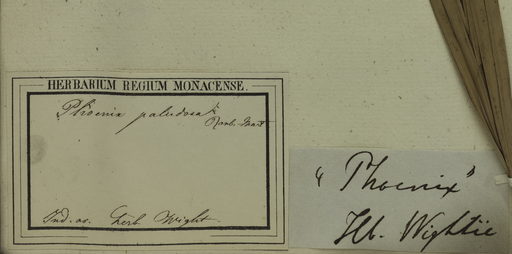 HERBARIUM REGIUM MONACENSE.
Phoenix paludosa
Roxb. Mart
Ind. or. herb. Wight
"Phoenix"
Hb. Wightii